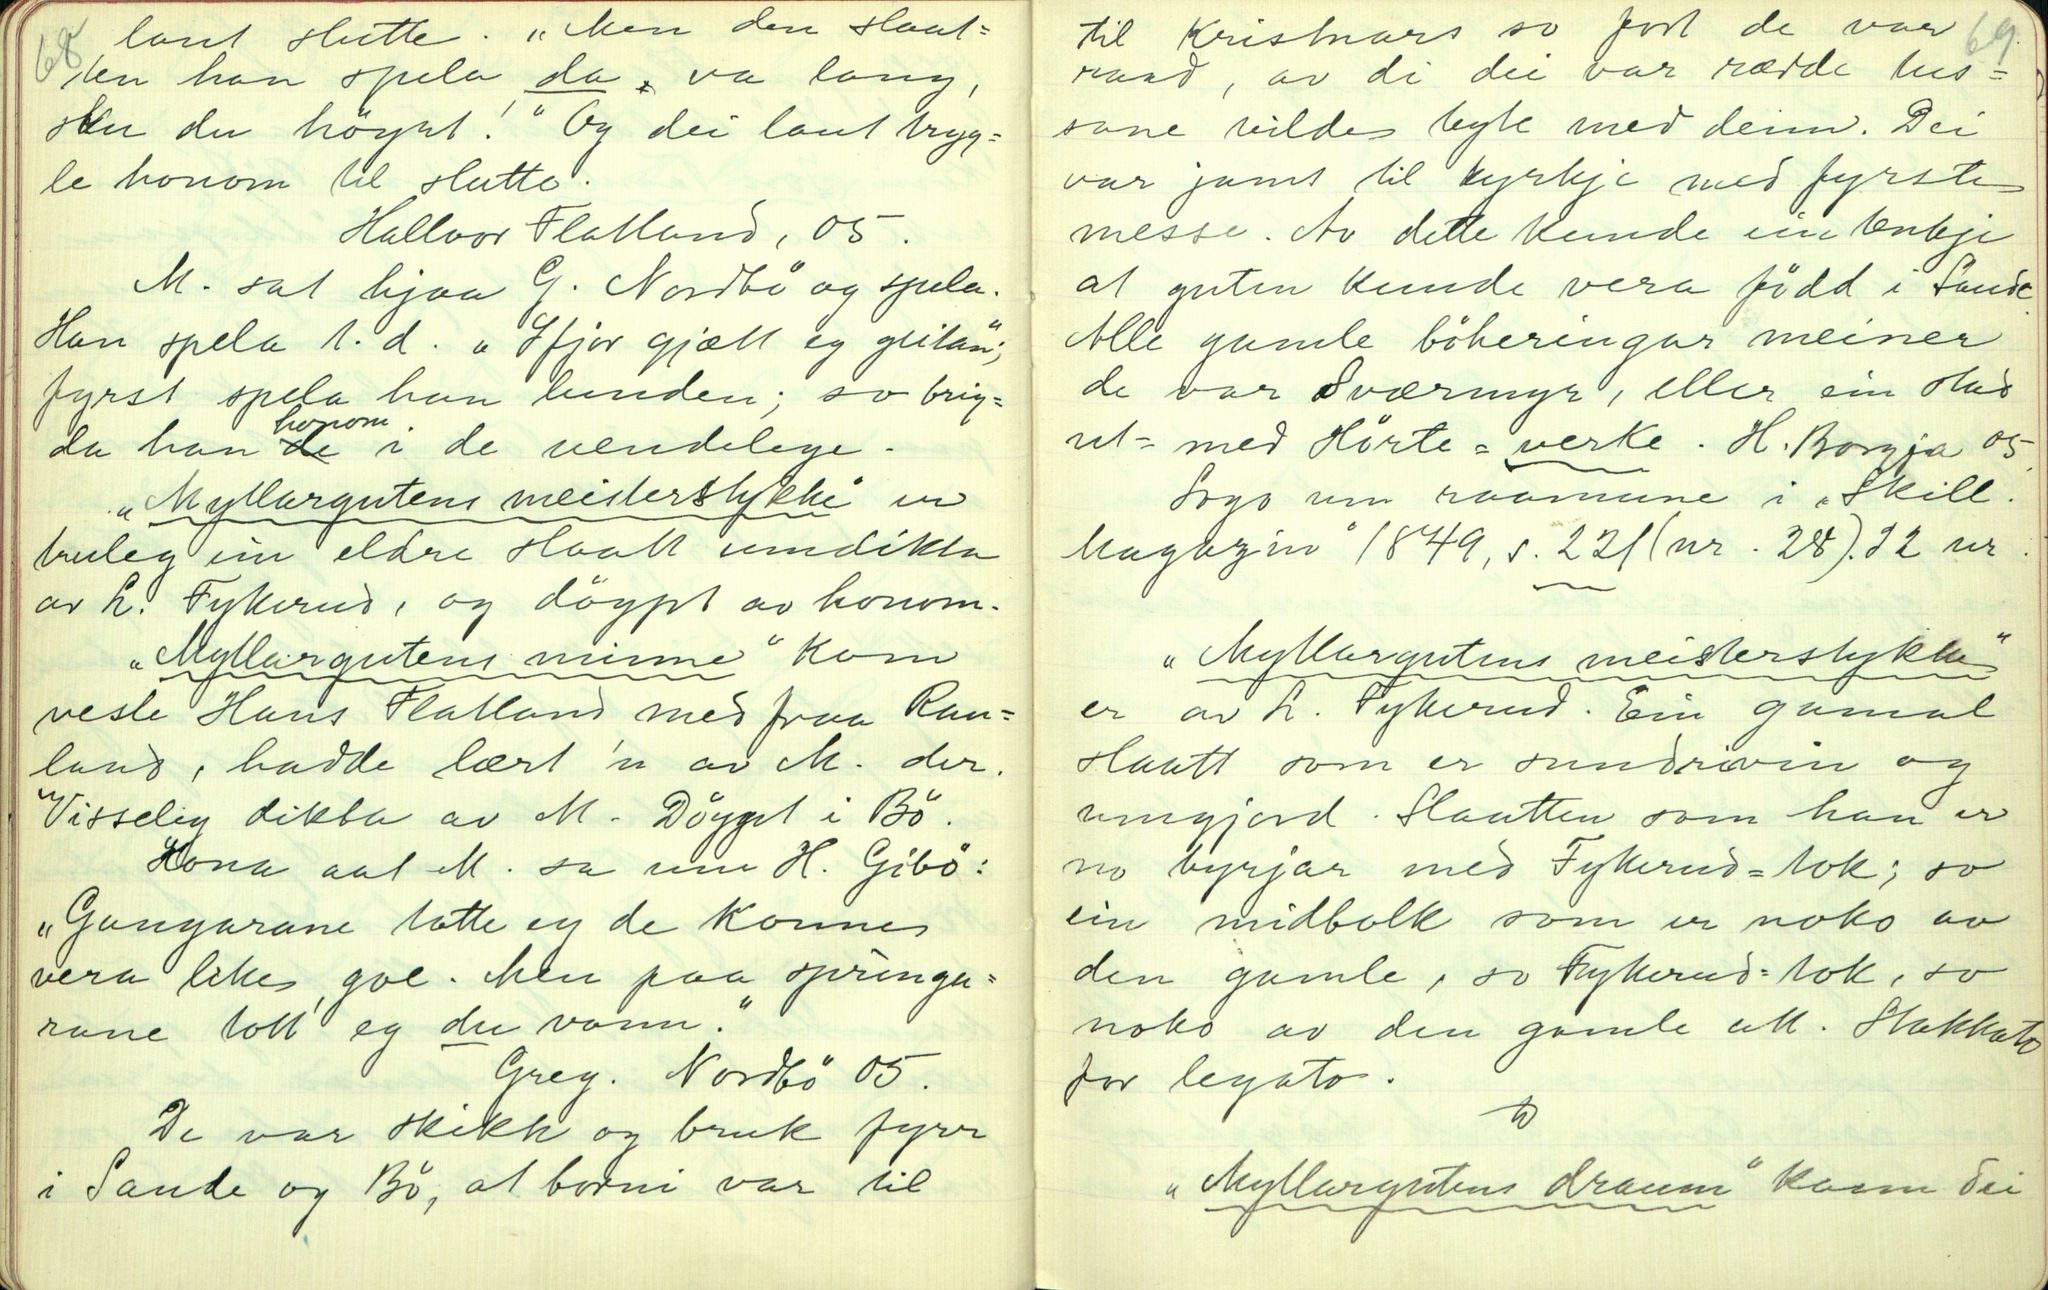 68
laut slutte. „Men den slaat-
ten han spela da, va lang,
ska du høyrt!“ Og dei laut tryg-
le honom til slutte.
Hallvor Flatland, 05.
M. sat hjaa G. Nordbö og spela.
Han spela t. d. „Ifjor gjætt eg gjitan“;
fyrst spela han bunden; so brig-
da han honom i de uendelege.
„Myllargutens meisterstykke“ er
truleg ein eldre slaatt umdikta
av L. Fykerud, og döypt av honom.
„Myllargutens minne“ kom
vesle Hans Flatland med fraa Rau-
land, hadde lært 'n av M. der.
Visseleg dikta av M. Döypt i Bö.
Kona aat M. sa um H. Gibö:
„Gangarane totte eg de konne
vera likes goe. Men paa springa-
rane tott' eg du vann.“
Greg. Nordbö 05.
De var skikk og bruk fyrr
i Sande og Bö, at borni var til
69
til Kristnars so fort de var
raad, av di dei var rædde tus-
sane vilde byte med deim. Dei
var jamt til kyrkje med fyrste
messe. Av dette kunde ein tenkje
at guten kunde vera född i Sande
Alle gamle böheringar meiner
de var Sværmyr, eller ein stad
ut- med Hörte-verke. H. Borgja 05.
Sogo um raamune i „Skill.
Magazin“ 1849, s. 221 (nr. 28). 32 nr.
„Myllargutens meisterstykke“
er av L. Fykerud. Ein gamal
slaatt som er sundriven og
umgjord. Slaatten som han er
no byrjar med Fykerud-tok; so
ein midbolk som er noko av
den gamle, so Fykerud-tok, so
noko av den gamle att. Stakkato
for legato.
„Myllargutens draum“ kaam dei